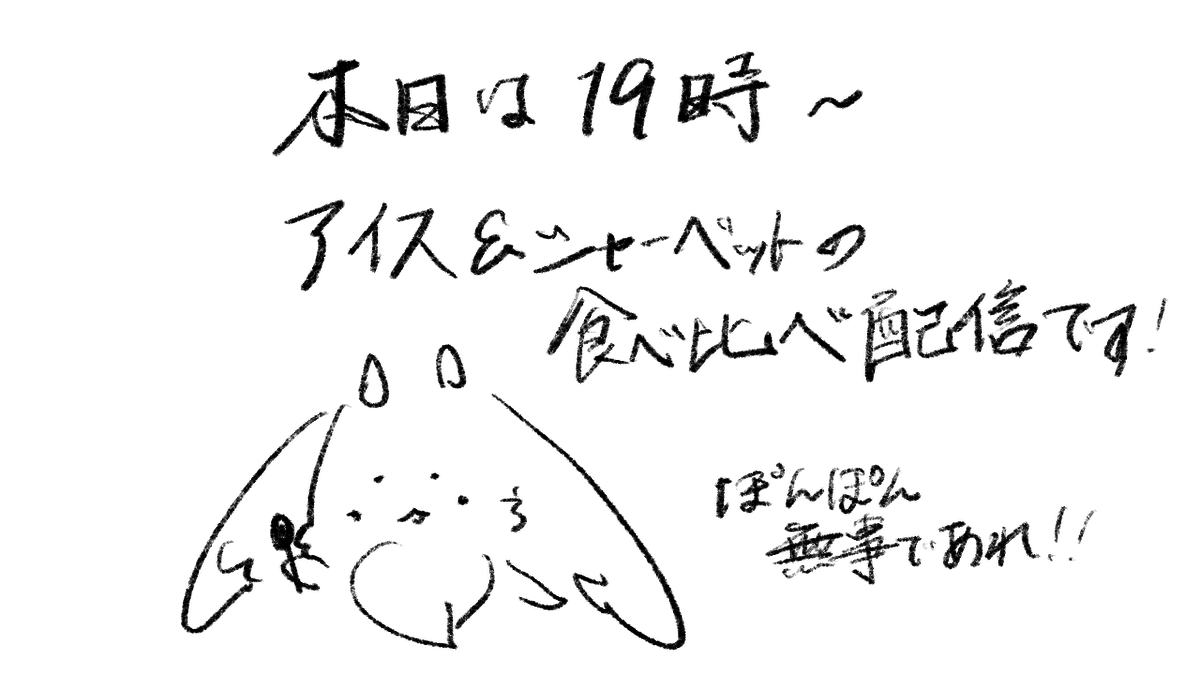 本日は19時～
アイス&シャーベットの
食べ比べ配信です！
ぽんぽん
無事であれ！！